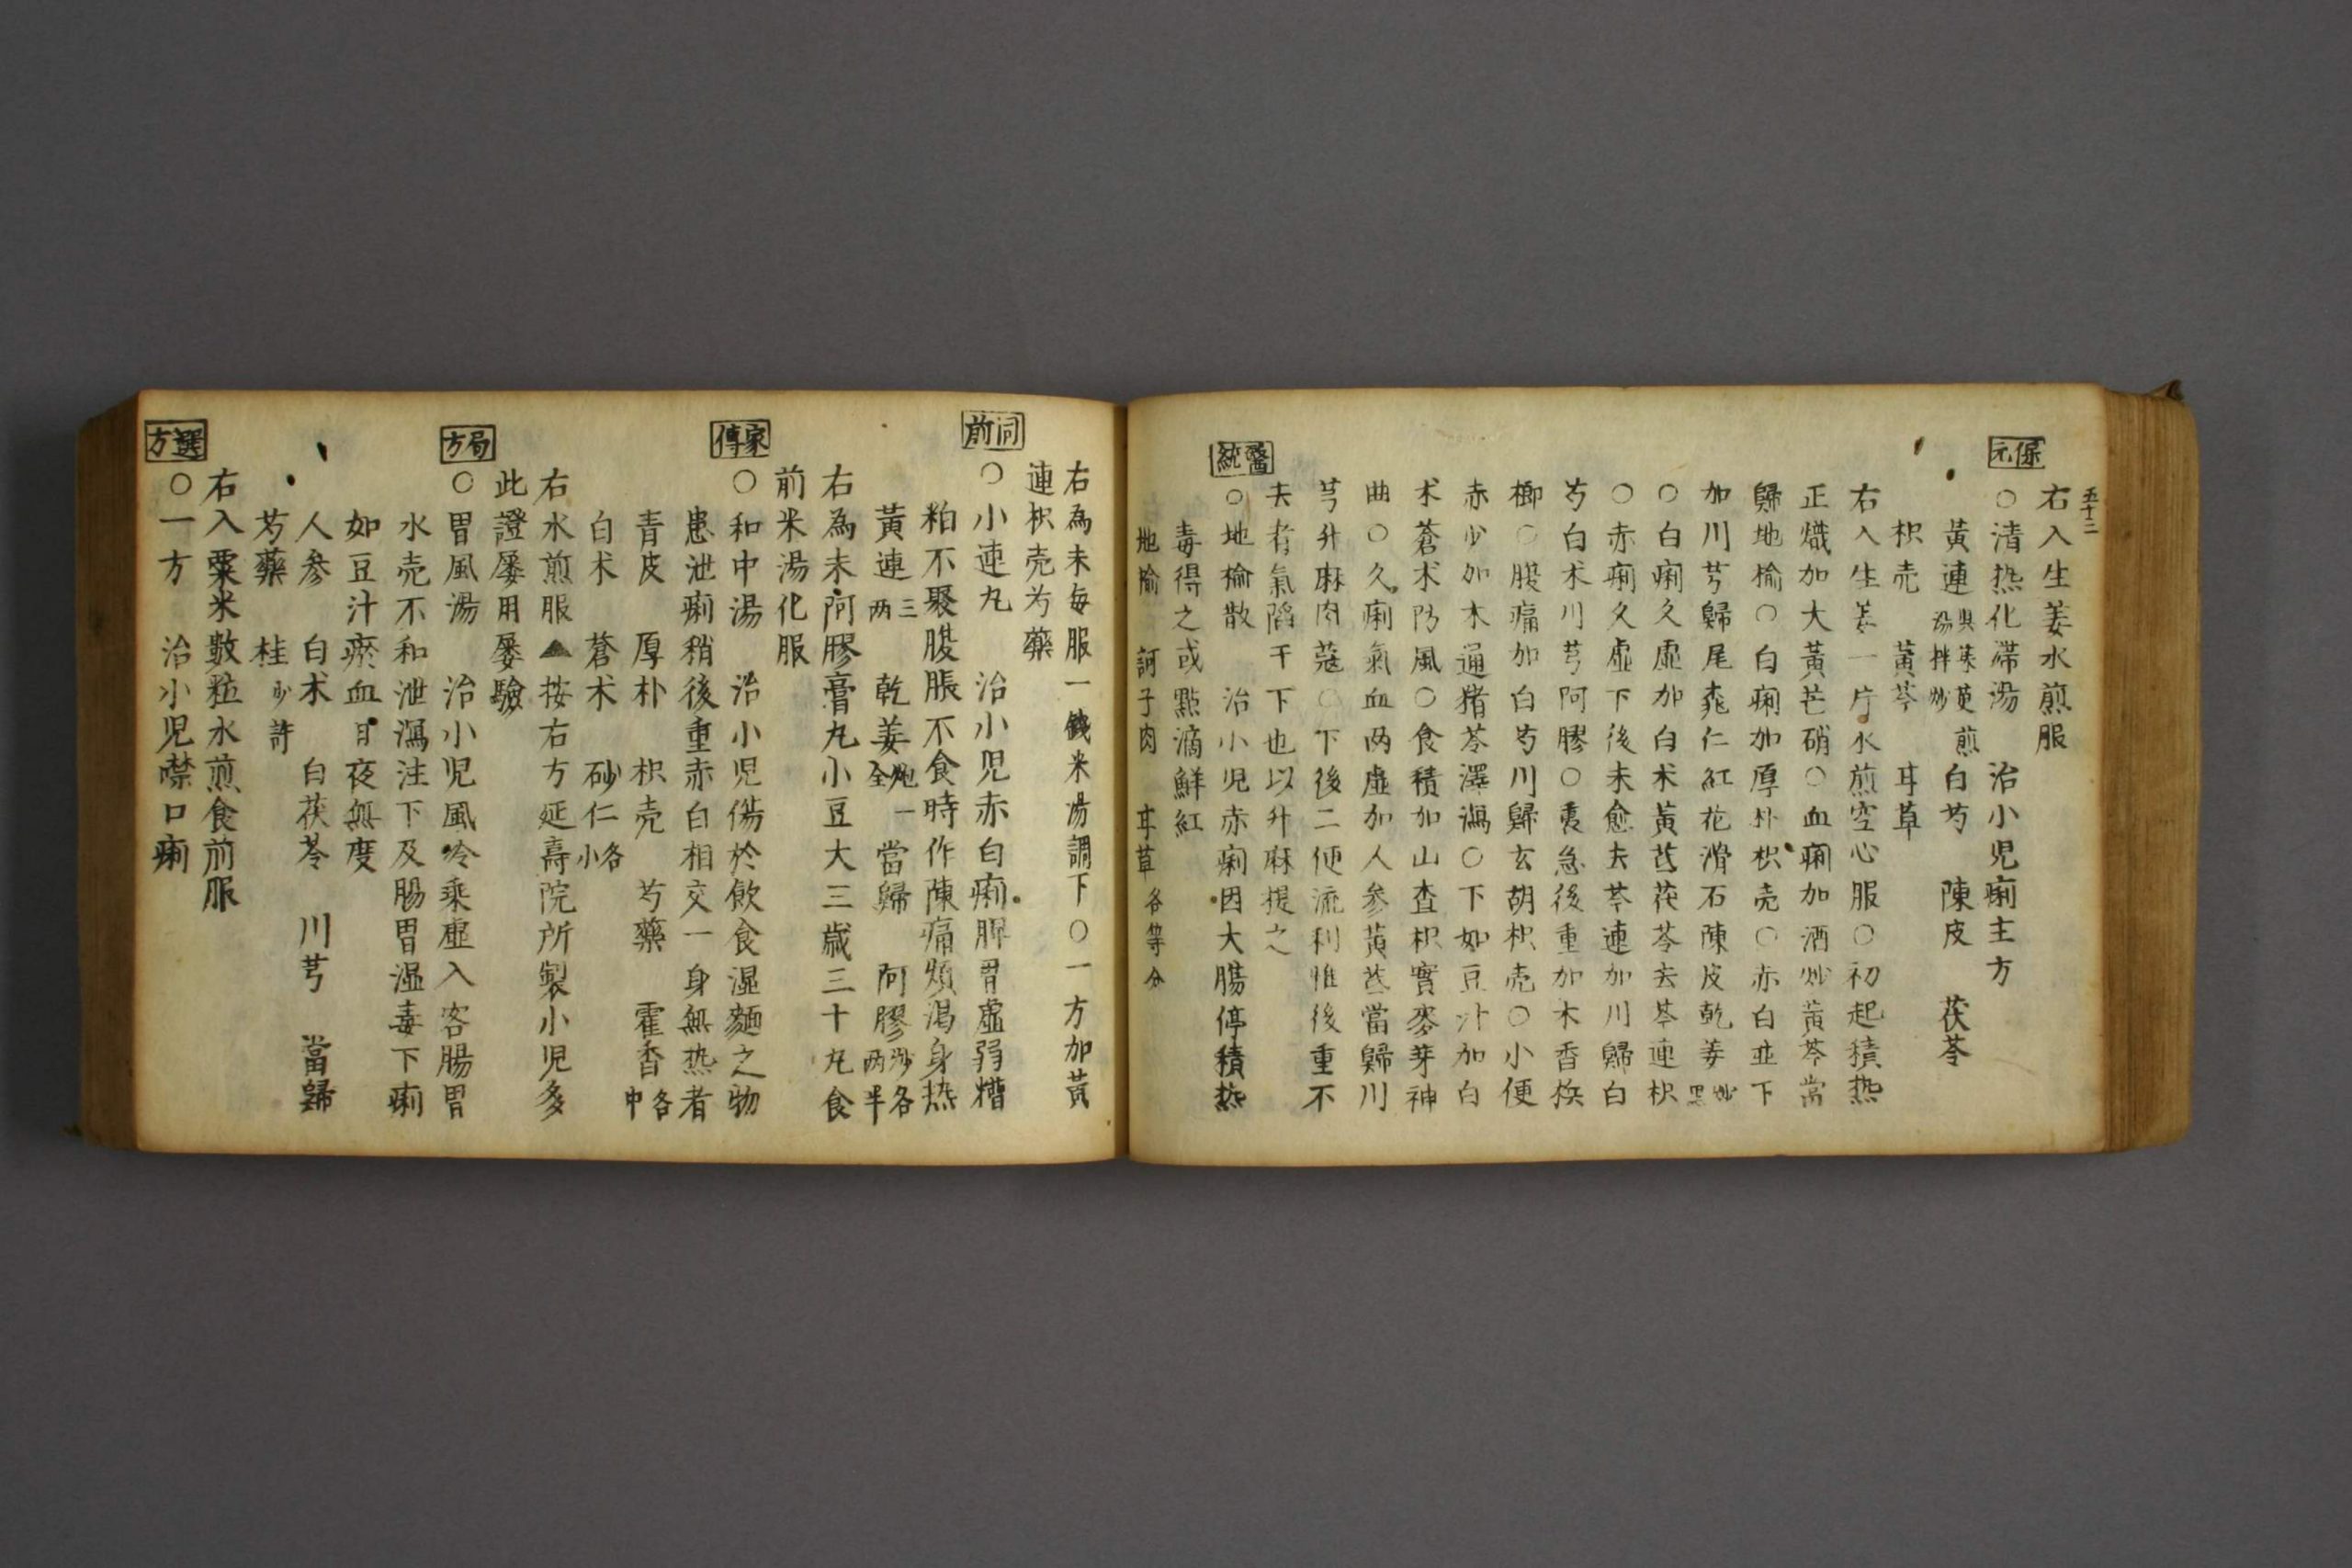 五十二
右入生姜水煎服
保元
○清热化滞湯 治小児痢主方
黄連 與茱萸煎湯拌炒 白芍 陳皮 茯苓
枳壳 黄芩 耳草
右入生姜一片水煎空心服○初起積热
正熾加大黄芒硝○血痢加酒炒黄芩當
歸地榆○白痢加厚朴枳壳○赤白並下
加川芎歸尾桃仁紅花滑石陳皮乾姜炒黑
○白痢久虚加白术黄芪茯苓去芩連枳
○赤痢久虚下後未愈去芩連加川歸白
芍白术川芎阿膠○裏急後重加木香檳
榔○腹痛加白芍川歸玄胡枳壳○小便
赤少加木通猪苓澤瀉○下如豆汁加白
术蒼术防風○食積加山査枳實麥芽神
曲○久痢氣血两虚加人参黄芪當歸川
芎升麻肉蔻○下後二便流利惟後重不
去者氣陷于下也以升麻提之
醫統
○地榆散 治小児赤痢因大腸停積热
毒得之或點滴鮮紅
地榆 訶子肉 耳草 各等分
右為末每服一錢米湯調下○一方加黄
連枳壳芍藥
同前
○小連丸 治小児赤白痢脾胃虚弱糟
粕不聚腹脹不食時作陳痛煩渇身热
黄連三两 乾姜炮一全 當歸 阿膠炒各两半
右為末阿膠膏丸小豆大三歳三十丸食
前米湯化服
家傳
○和中湯 治小児傷於飲食湿麺之物
患泄痢稍後重赤白相交一身無热者
青皮 厚朴 枳壳 芍藥 霍香各中
白术 蒼术 砂仁各小
右水煎服▲按右方延壽院所製小児多
此證屡用屡驗
局方
○胃風湯 治小児風冷乘虚入客腸胃
水壳不和泄瀉注下及腸胃湿毒下痢
如豆汁瘀血日夜無度
人参 白术 白茯苓 川芎 當歸
芍藥 桂少許
右入粟米數粒水煎食前服
選方
○一方 治小児噤口痢